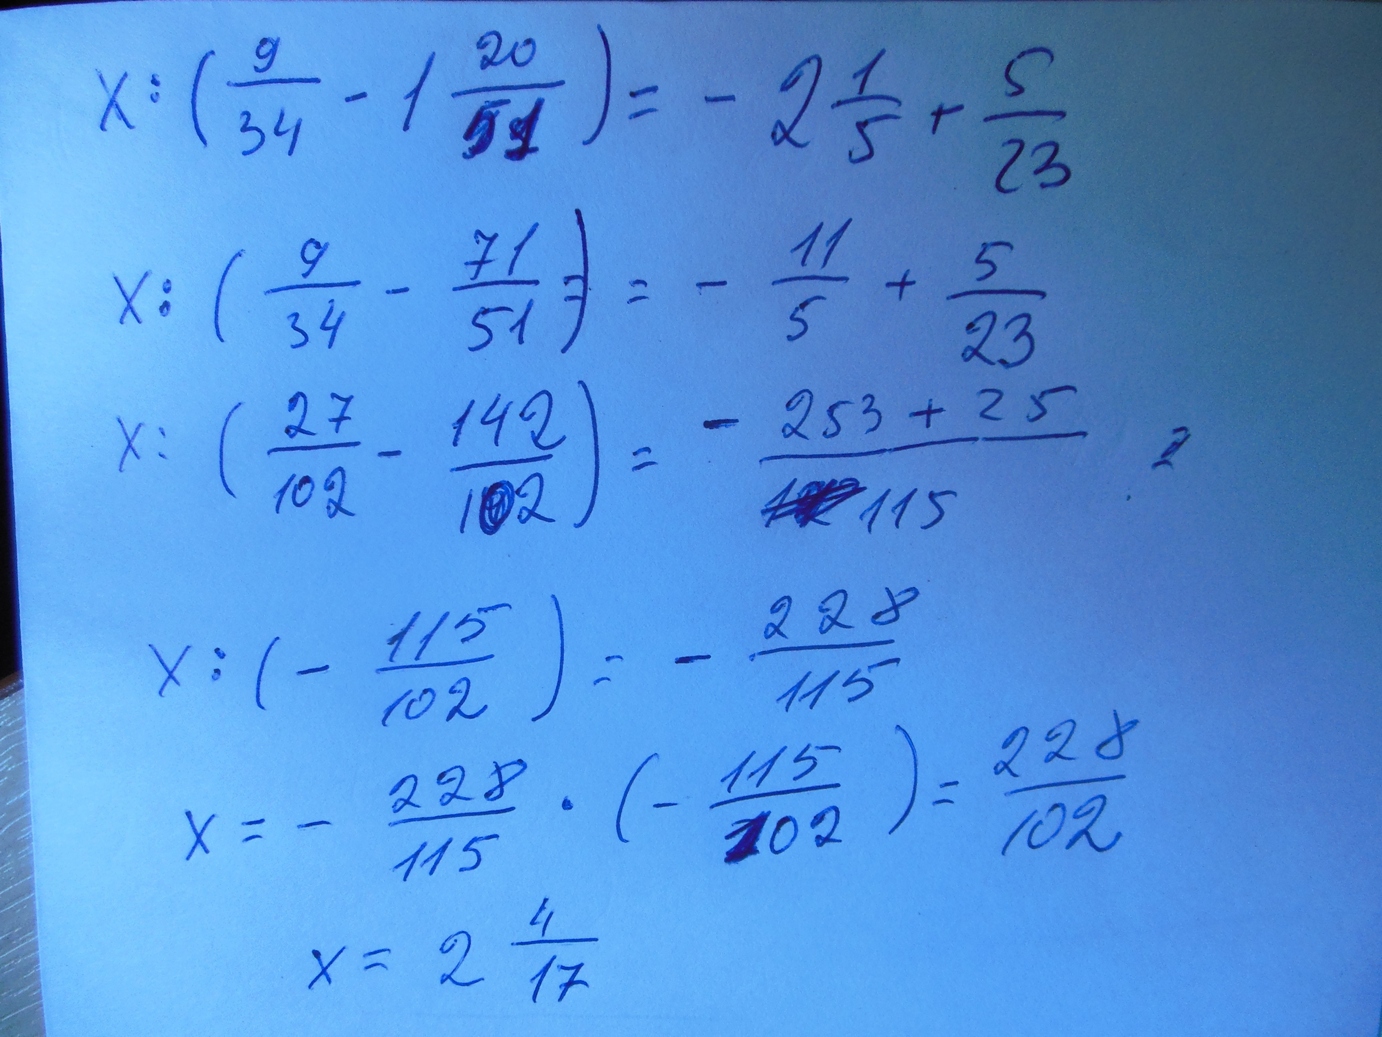 x : ( 9/34 - 1 20/51 ) = - 2 1/5 + 5/23
x : ( 9/34 - 71/51 ) = - 11/5 + 5/23
x : ( 27/102 - 142/102 ) = (- 253 + 25)/115 =
x : ( - 115/102 ) = - 228/115
x = - 228/115 · ( - 115/102 ) = 228/102
x = 2 4/17